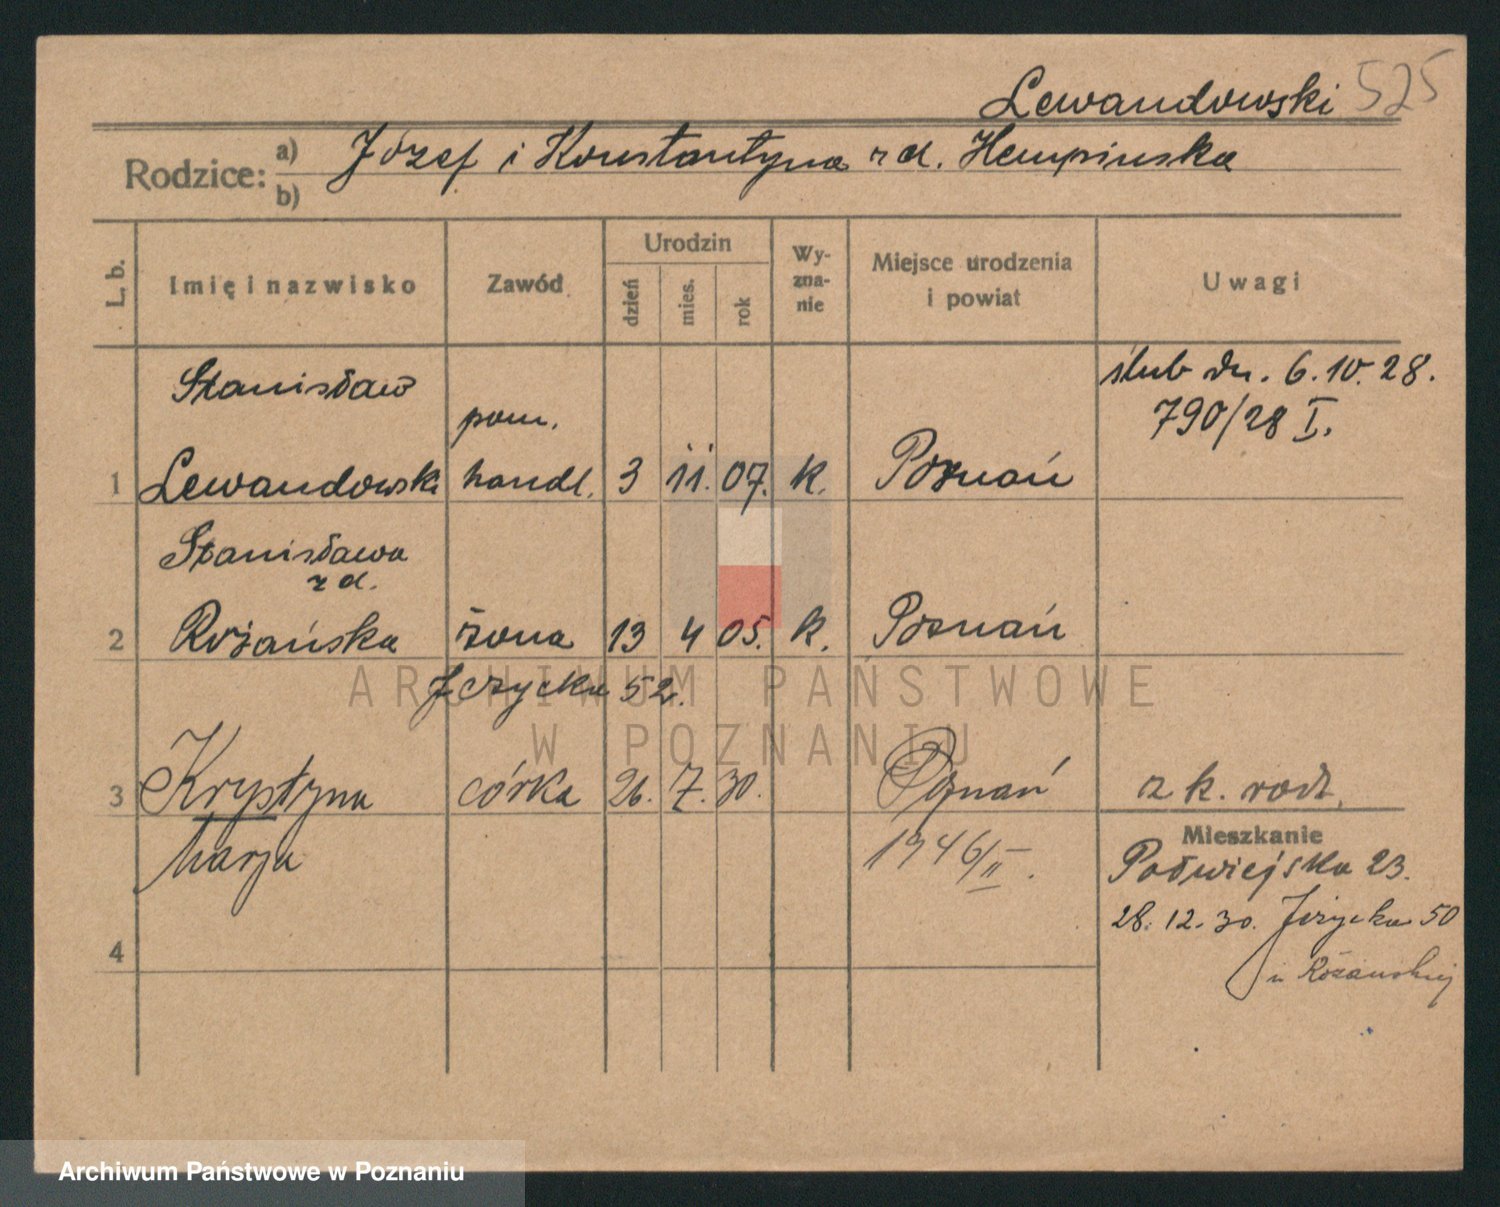 Lewandowski 525
Rodzice: a) Józef i Konstantyna z d. Hempinska
b)
L. b. Imię i nazwisko Zawód Urodzin dzień mies. rok Wy-zna-nie Miejsce urodzenia i powiat Uwagi
Stanisław ślub dn. 6.10.28.
pom. 790/28 I.
1 Lewandowski handl. 3 11. 07. k. Poznań
Stanisława
z d.
2 Rożańska żona 13 4 05. k. Poznań
Jeżycka 52.
3 Krystyna córka 26. 7. 30. Poznań z k. rodz.
Marja 1946/II.
Mieszkanie
Półwiejska 23.
28.12.30. Jeżycka 50
u Różańskiej
4
ARCHIWUM PAŃSTWOWE
W POZNANIU
Archiwum Państwowe w Poznaniu